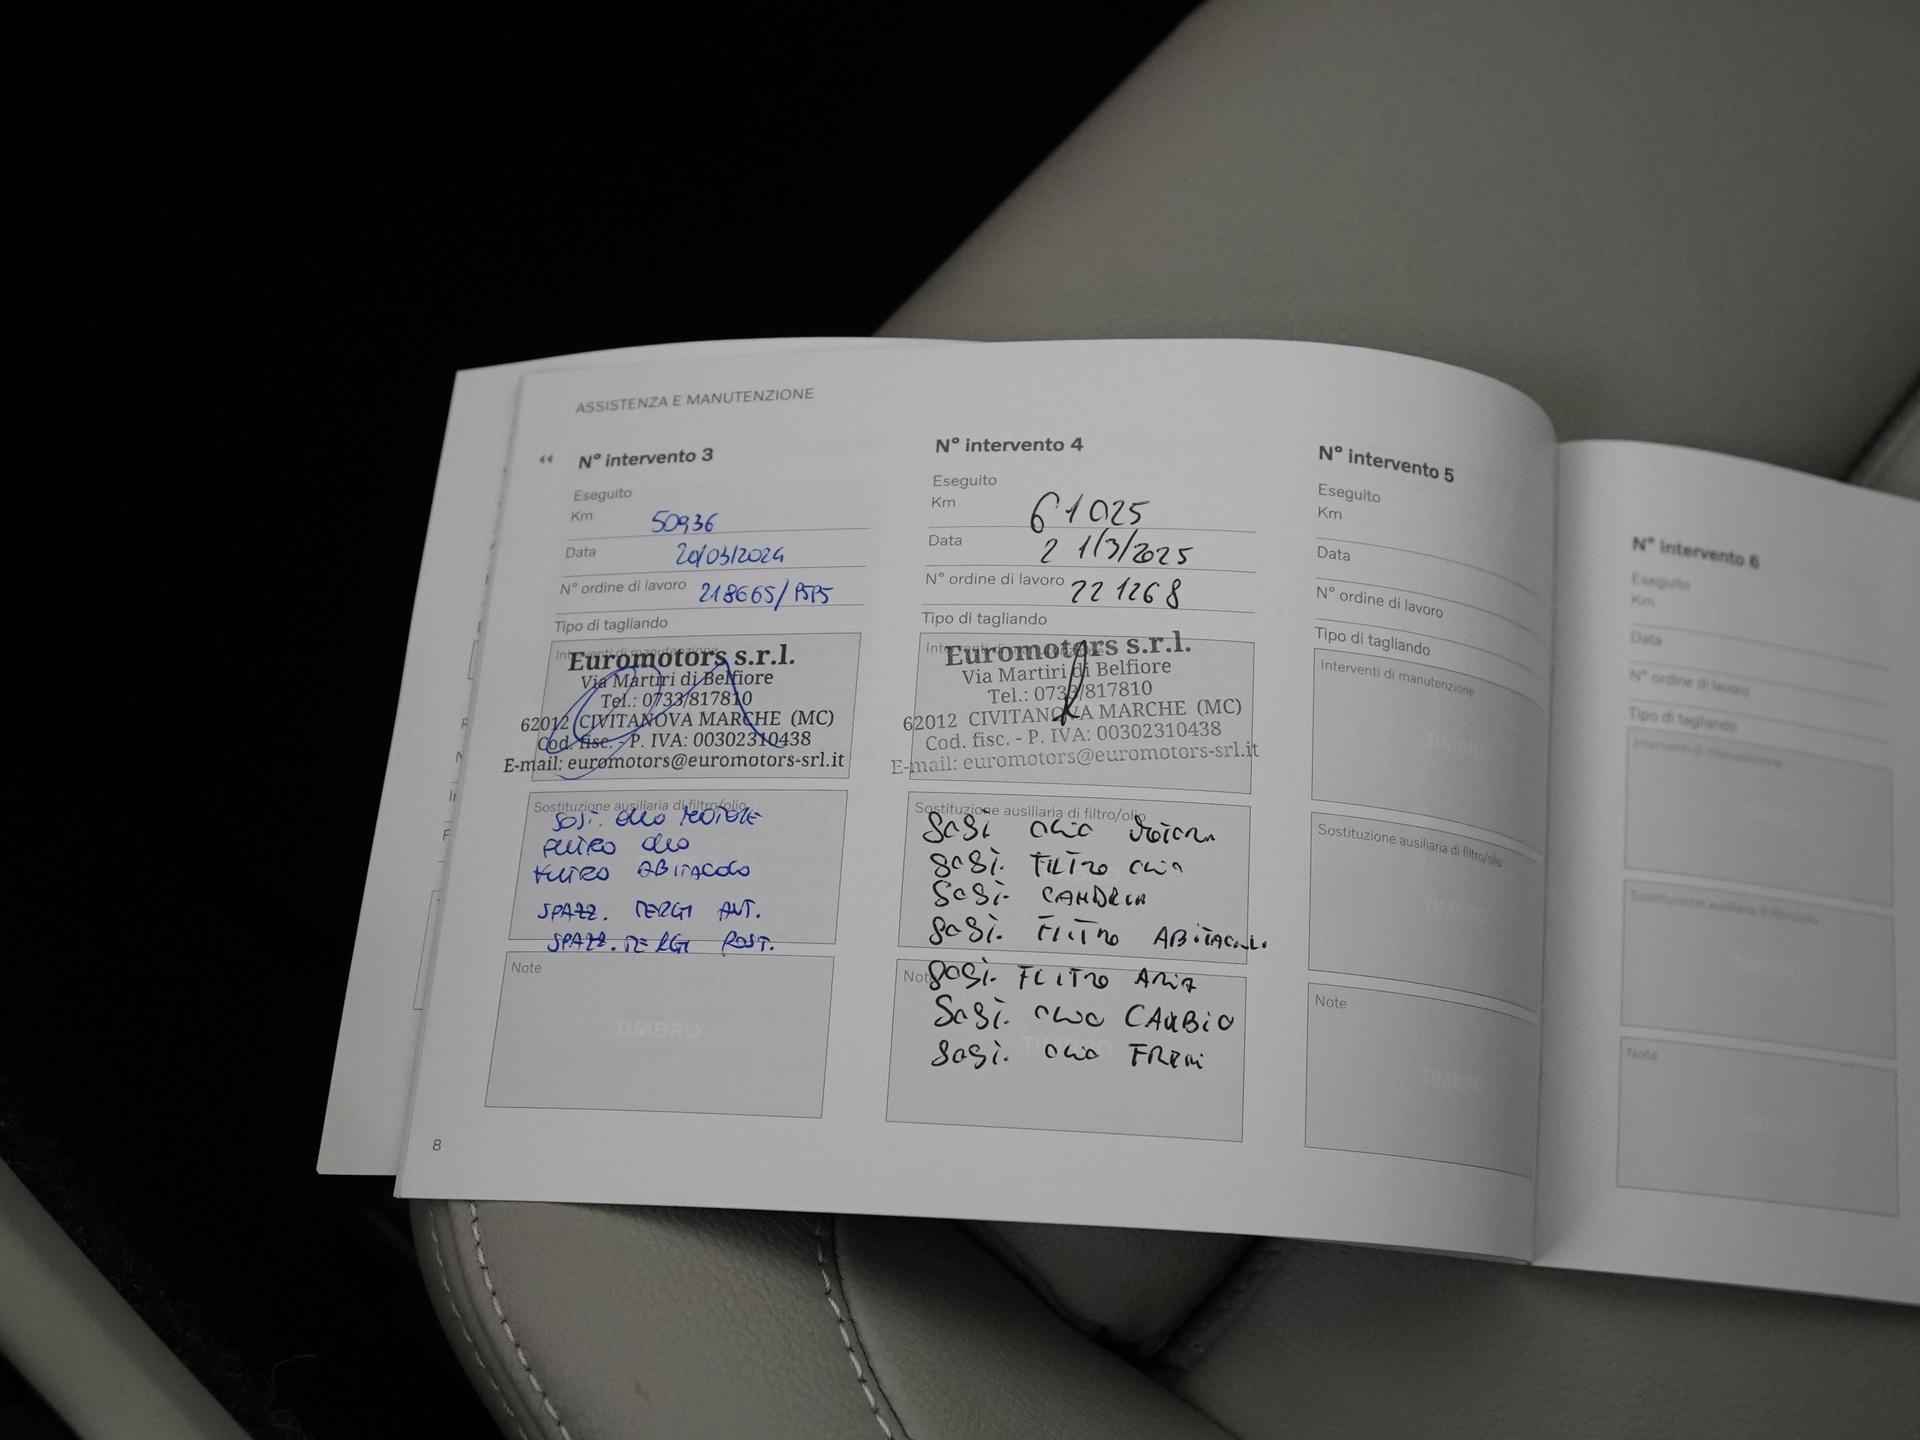 ASSISTENZA E MANUTENZIONE
“ N° intervento 3
Eseguito
Km 50936
Data 20/03/2024
N° ordine di lavoro 218665/
Tipo di tagliando
Interventi di manutenzione
Euromotors s.r.l.
Via Martiri di Belfiore
Tel.: 0733/817810
62012 CIVITANOVA MARCHE (MC)
Cod. fisc. - P. IVA: 00302310438
E-mail: euromotors@euromotors-srl.it
Sostituzione ausiliaria di filtro/olio
SOST. OLIO MOTORE
FILTRO OLIO
FILTRO ABITACOLO
SPAZZ. TERGI ANT.
SPAZZ. TERGI POST.
Note
TIMBRO
8
N° intervento 4
Eseguito
Km 61025
Data 21/3/2025
N° ordine di lavoro 221268
Tipo di tagliando
Interventi di manutenzione
Euromotors s.r.l.
Via Martiri di Belfiore
Tel.: 0733/817810
62012 CIVITANOVA MARCHE (MC)
Cod. fisc. - P. IVA: 00302310438
E-mail: euromotors@euromotors-srl.it
Sostituzione ausiliaria di filtro/olio
Sost. olio motore
Sost. FILTRO olio
Sost. CANDELE
Sost. FILTRO ABITACOLO
Note
Sost. FILTRO ARIA
Sost. olio CAMBIO
Sost. olio FRENI
N° intervento 5
Eseguito
Km
Data
N° ordine di lavoro
Tipo di tagliando
Interventi di manutenzione
Sostituzione ausiliaria di filtro/olio
Note
TIMBRO
N° intervento 6
Eseguito
Km
Data
N° ordine di lavoro
Tipo di tagliando
Interventi di manutenzione
Sostituzione ausiliaria di filtro/olio
Note